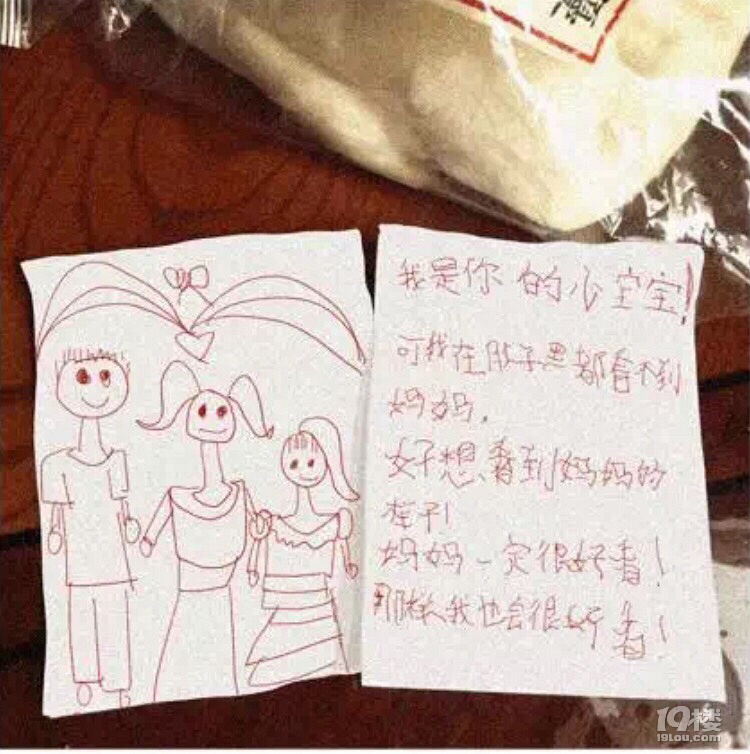 我是你的心宝宝！
可我在肚子里都看不到
妈妈，
好想看到妈妈的
样子！
妈妈一定很好看！
那样我也会很好看！
19楼
19lou.com